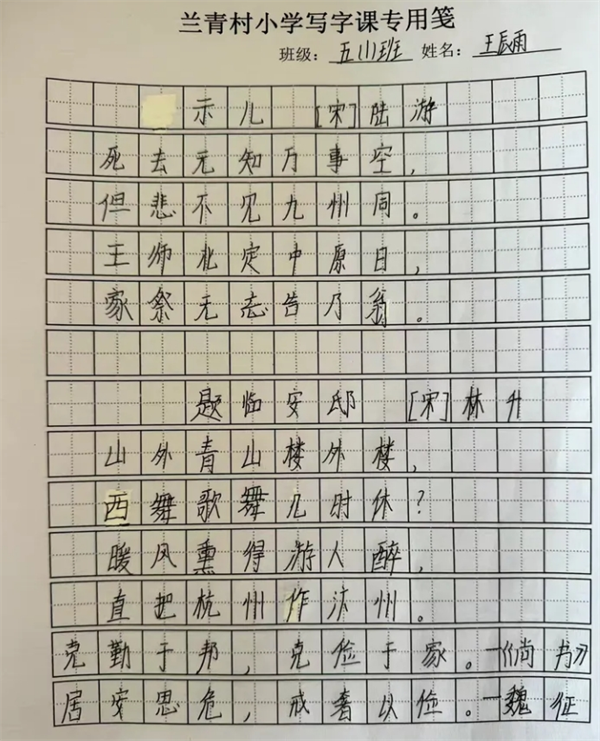 兰青村小学写字课专用笺
班级：五(1)班 姓名：王辰雨
示儿 [宋]陆游
死去元知万事空，
但悲不见九州同。
王师北定中原日，
家祭无忘告乃翁。
题临安邸 [宋]林升
山外青山楼外楼，
西舞歌舞几时休？
暖风熏得游人醉，
直把杭州作汴州。
克勤于邦，克俭于家。—《尚书》
居安思危，戒奢以俭。—魏征